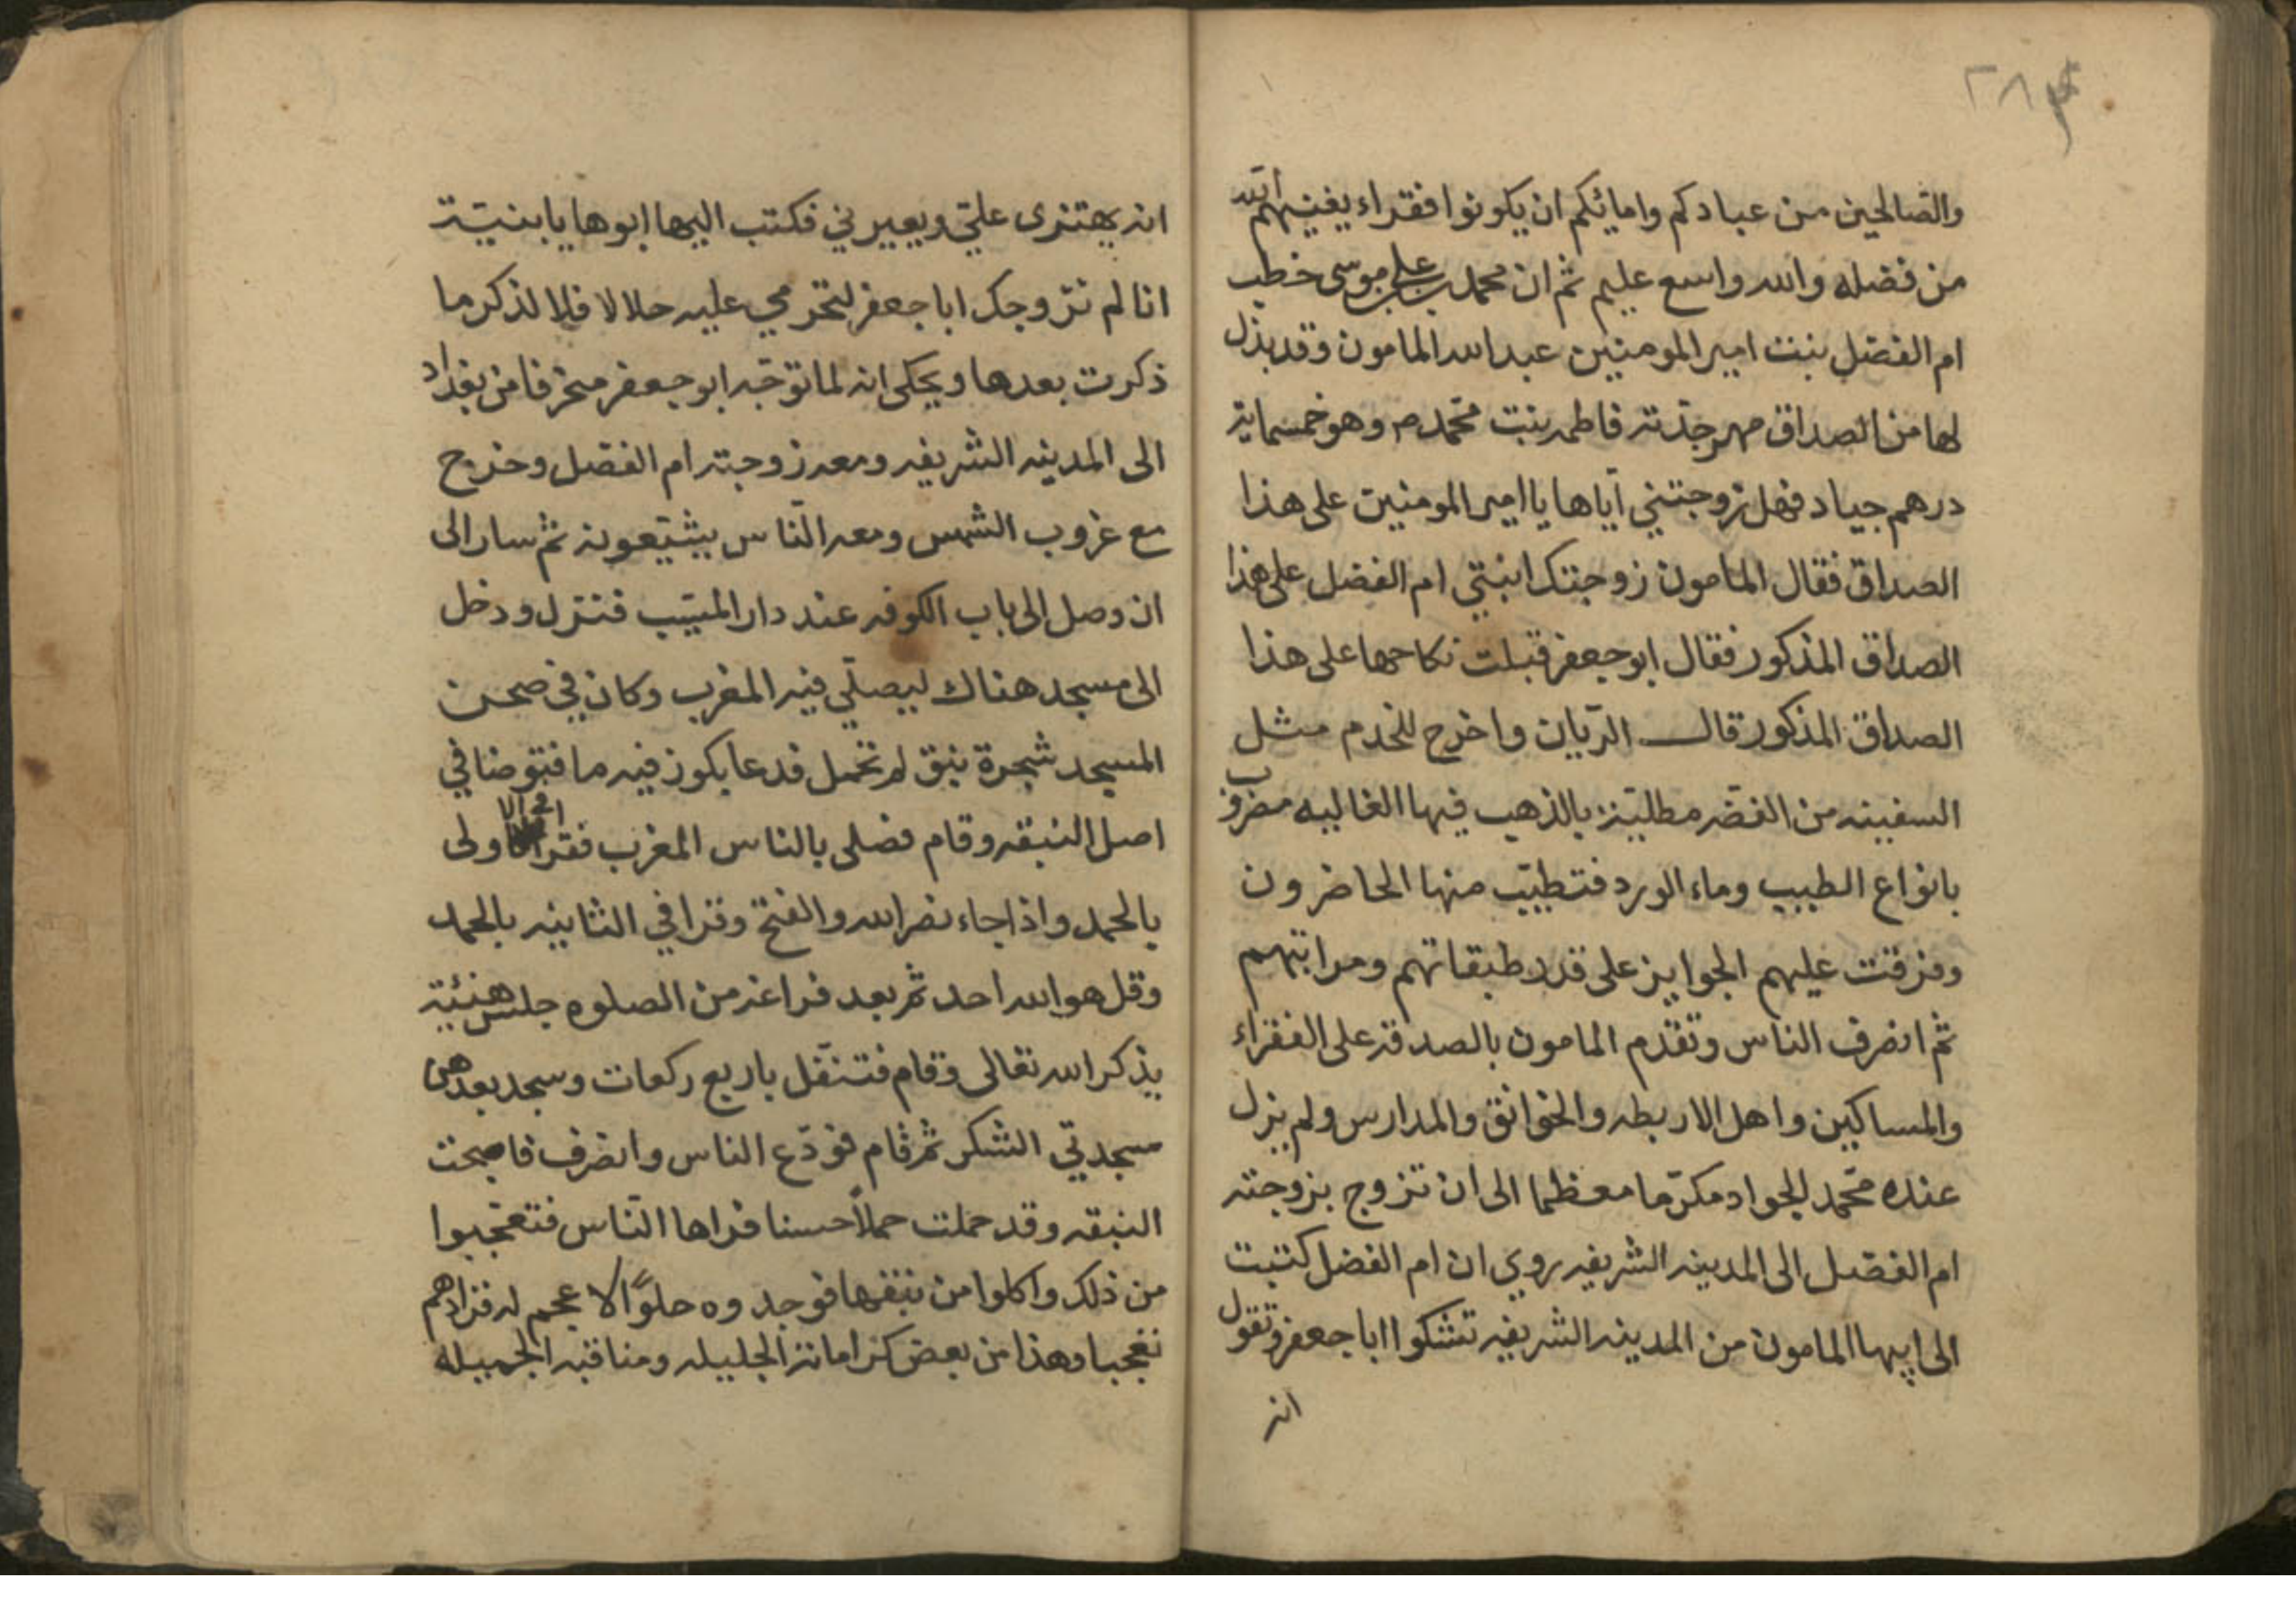 ٢٨٣
والصالحين من عبادكم وامائكم ان يكونوا فقراء يغنيهم الله
من فضله والله واسع عليم ثم ان محمد بن علي بن موسى خطب
ام الفضل بنت امير المومنين عبد الله المامون وقد بذل
لها من الصداق مهر جدته فاطمه بنت محمدم وهو خمسماية
درهم جياد فهل زوجتني اياها يا امير المومنين على هذا
الصداق فقال المامون زوجتك ابنتي ام الفضل على هذا
الصداق المذكور فقال ابو جعفر قبلت نكاحها على هذا
الصداق المذكور قال الريان واخرج للخدم مثل
السفينه من الفضه مطلية بالذهب فيها الغاليه مضروب
بانواع الطيب وماء الورد فتطيب منها الحاضرون
وفرقت عليهم الجوايز على قدر طبقاتهم ومراتبهم
ثم انصرف الناس وتقدم المامون بالصدقه على الفقراء
والمساكين واهل الاربطه والخوانق والمدارس ولم يزل
عنده محمد الجواد مكرما معظما الى ان تزوج بزوجته
ام الفضل الى المدينه الشريفه روي ان ام الفضل كتبت
الى ابيها المامون من المدينه الشريفه تشكوا ابا جعفر وتقول
انه
انه يهتزى علي ويعيرني فكتب اليها ابوها يا بنية
انا لم نزوجك ابا جعفر لتحرمي عليه حلالا فلا لذكر ما
ذكرت بعدها ويحكى انه لما توجه ابو جعفر منحرفا من بغداد
الى المدينه الشريفه ومعه زوجته ام الفضل وخرج
مع غروب الشمس ومعه الناس يشيعونه ثم سار الى
ان وصل الى باب الكوفه عند دار المسيب فنزل ودخل
الى مسجد هناك ليصلي فيه المغرب وكان في صحن
المسجد شجرة نبق لم تحمل فدعا بكوز فيه ما فتوضا في
اصل النبقه وقام فصلى بالناس المغرب فقرا في الاولى
بالحمد واذا جاء نصر الله والفتح وقرا في الثانيه بالحمد
وقل هو الله احد ثم بعد فراغه من الصلوه جلس هنيئة
يذكر الله تعالى وقام فتنفل باربع ركعات وسجد بعدهن
سجدتي الشكر ثم قام فودع الناس وانصرف فاصبحت
النبقه وقد حملت حملا حسنا فراها الناس فتعجبوا
من ذلك واكلوا من نبقها فوجدوه حلوا لا عجم له فزادهم
تعجبا وهذا من بعض كراماته الجليله ومناقبه الجميله